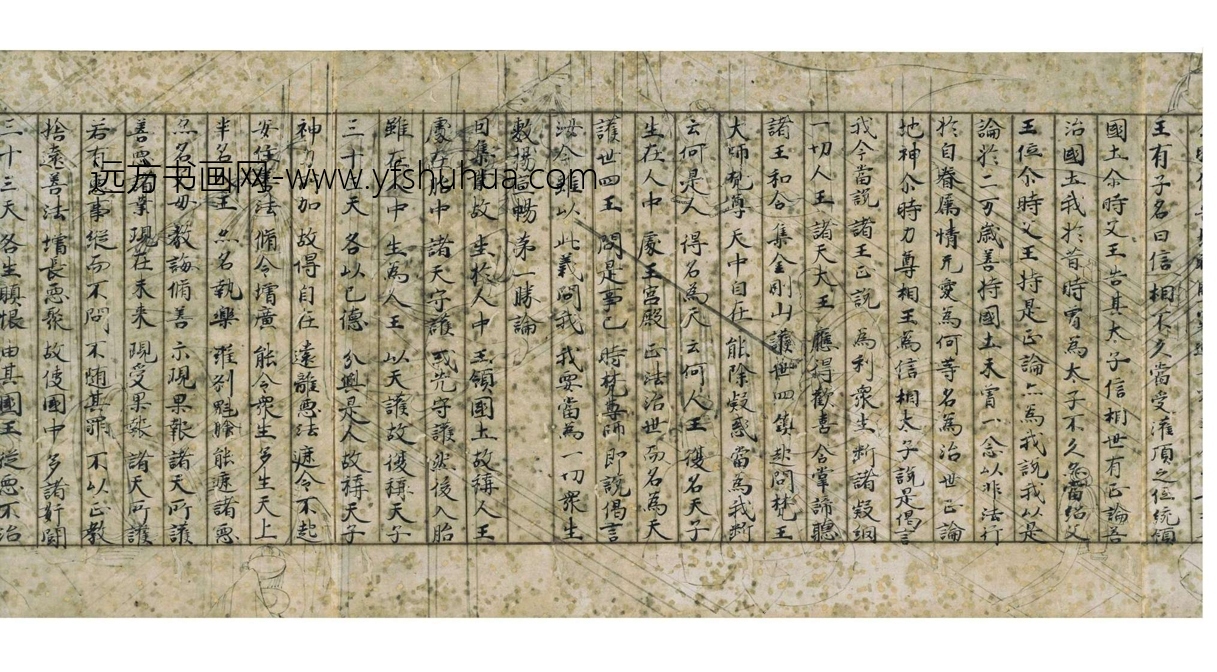 王有子名曰信相不久當受灌頂之位統領
國土尒時父王告其太子信相世有正論善
治國土我於昔時曾為太子不久當紹父
王位尒時父王持是正論亦為我說我以是
論於二万歲善持國土未曾一念以非法行
於自眷屬情无愛為何等名為治世正論
地神尒時力尊相王為信相太子說是偈言
我今當說 諸王正說 為利眾生 斷諸疑網
一切人王 諸天大王 應得歡喜 合掌諦聽
諸王和合 集金剛山 護世四鎮 起問梵王
大師梵尊 天中自在 能除疑惑 當為我斷
云何是人 得名為天 云何人王 復名天子
生在人中 處王宮殿 正法治世 而名為天
護世四王 問是事已 時梵尊師 即說偈言
汝今雖以 此義問我 我要當為 一切眾生
敷揚宣暢 苐一勝論
因集業故 生於人中 王領國土 故稱人王
處在胎中 諸天守護 或先守護 然後入胎
雖在人中 生為人王 以天護故 復稱天子
三十三天 各以己德 分與是人 故稱天子
神力所加 故得自在 遠離惡法 遮令不起
安住善法 脩令增廣 能令眾生 多生天上
半名人王 亦名執樂 羅刹魁膾 能遮諸惡
亦名父母 教誨脩善 示現果報 諸天所護
善惡諸業 現在未來 現受果報 諸天所護
若有惡事 縱而不問 不随其罪 不以正教
捨遠善法 增長惡聚 故使國中 多諸奸鬪
三十三天 各生瞋恨 由其國王 縱惡不治
远方书画网-www.yfshuhua.com